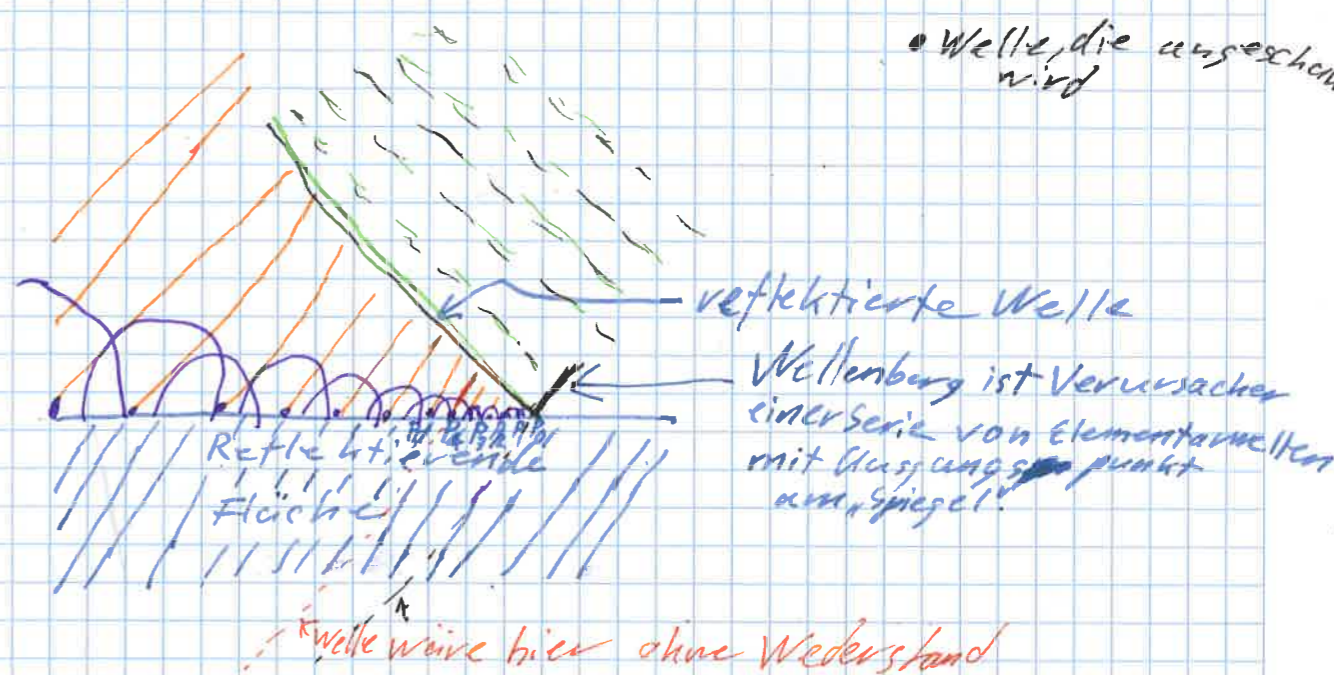 • Welle, die
wird
reflektierte Welle
Wellenberg ist Verursacher
einer Serie von Elementarwellen
mit Ausgangspunkt
am „Spiegel“.
Reflektierende
Fläche
Welle wäre hier ohne Wederstand